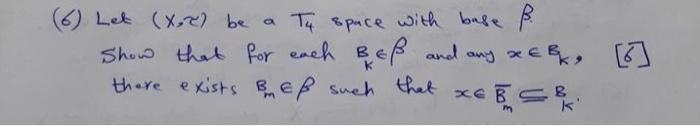 (6) Let (X,τ) be a T₄ space with base β.
Show that for each B_k ∈ β and any x ∈ B_k, [6]
there exists B_m ∈ β such that x ∈ B̅_m ⊆ B_k.